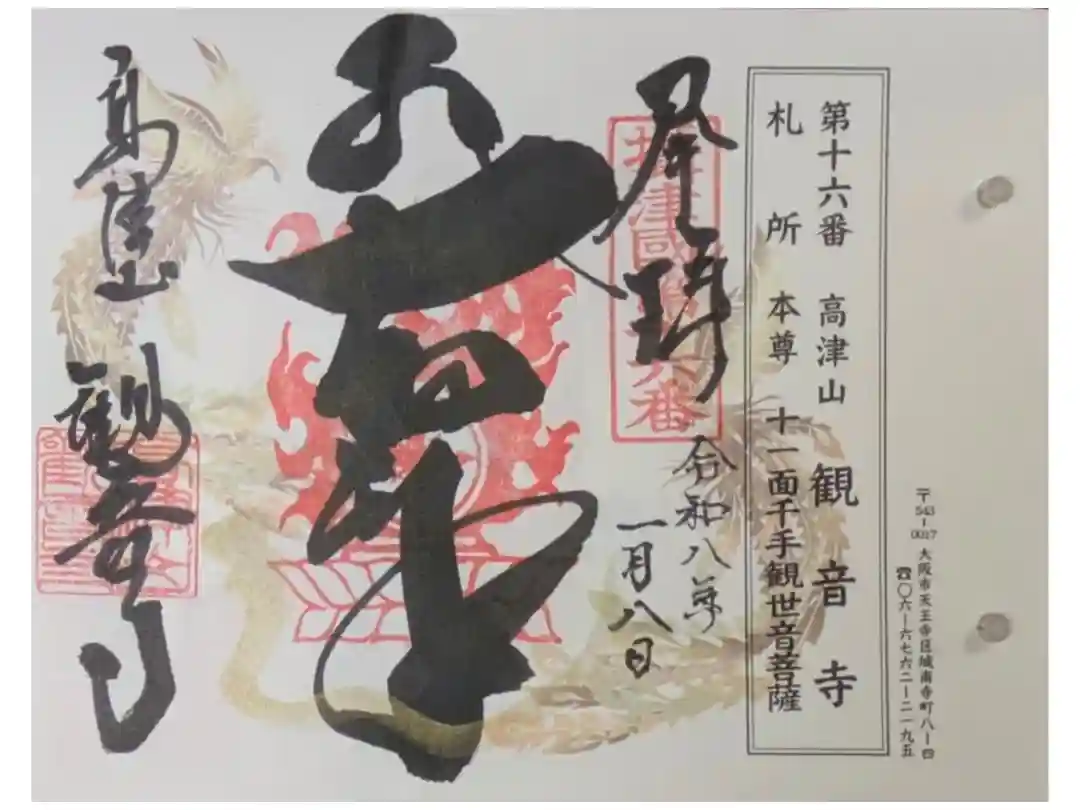 〒543-0017 大阪市天王寺区城南寺町八ー四
☎〇六ー六七六二ー二一九五
第十六番 高津山 観音寺
札所本尊 十一面千手観世音菩薩
奉拝
令和八年
一月八日
高津山 観音寺